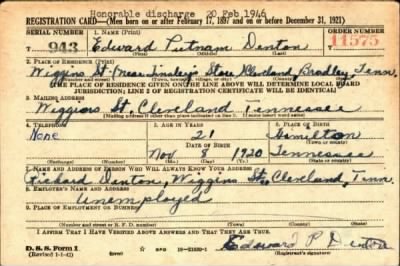 Honorable discharge 20 Feb 1946
REGISTRATION CARD—(Men born on or after February 17, 1897 and on or before December 31, 1921)
SERIAL NUMBER 1. NAME (Print) ORDER NUMBER
T 943 Edward Putnam Denton 11575
2. PLACE OF RESIDENCE (Print)
Wiggins St. (Near Tinsley's Store) Cleveland, Bradley, Tenn.
(Number and street) (Town, township, village, or city) (County) (State)
[THE PLACE OF RESIDENCE GIVEN ON THE LINE ABOVE WILL DETERMINE LOCAL BOARD
JURISDICTION; LINE 2 OF REGISTRATION CERTIFICATE WILL BE IDENTICAL]
3. MAILING ADDRESS
Wiggins St. Cleveland Tennessee
[Mailing address if other than place indicated on line 2. If same insert word same]
4. TELEPHONE 5. AGE IN YEARS 6. PLACE OF BIRTH
None 21 Hamilton
DATE OF BIRTH (Town or county)
Nov 8 1920 Tennessee
(Exchange) (Number) (Mo.) (Day) (Yr.) (State or country)
7. NAME AND ADDRESS OF PERSON WHO WILL ALWAYS KNOW YOUR ADDRESS
Richard Denton, Wiggins St., Cleveland, Tenn.
8. EMPLOYER'S NAME AND ADDRESS
Unemployed
9. PLACE OF EMPLOYMENT OR BUSINESS
(Number and street or R. F. D. number) (Town) (County) (State)
I AFFIRM THAT I HAVE VERIFIED ABOVE ANSWERS AND THAT THEY ARE TRUE.
D. S. S. Form 1
(Revised 1-1-42) GPO 16—21630-1 Edward P. Denton